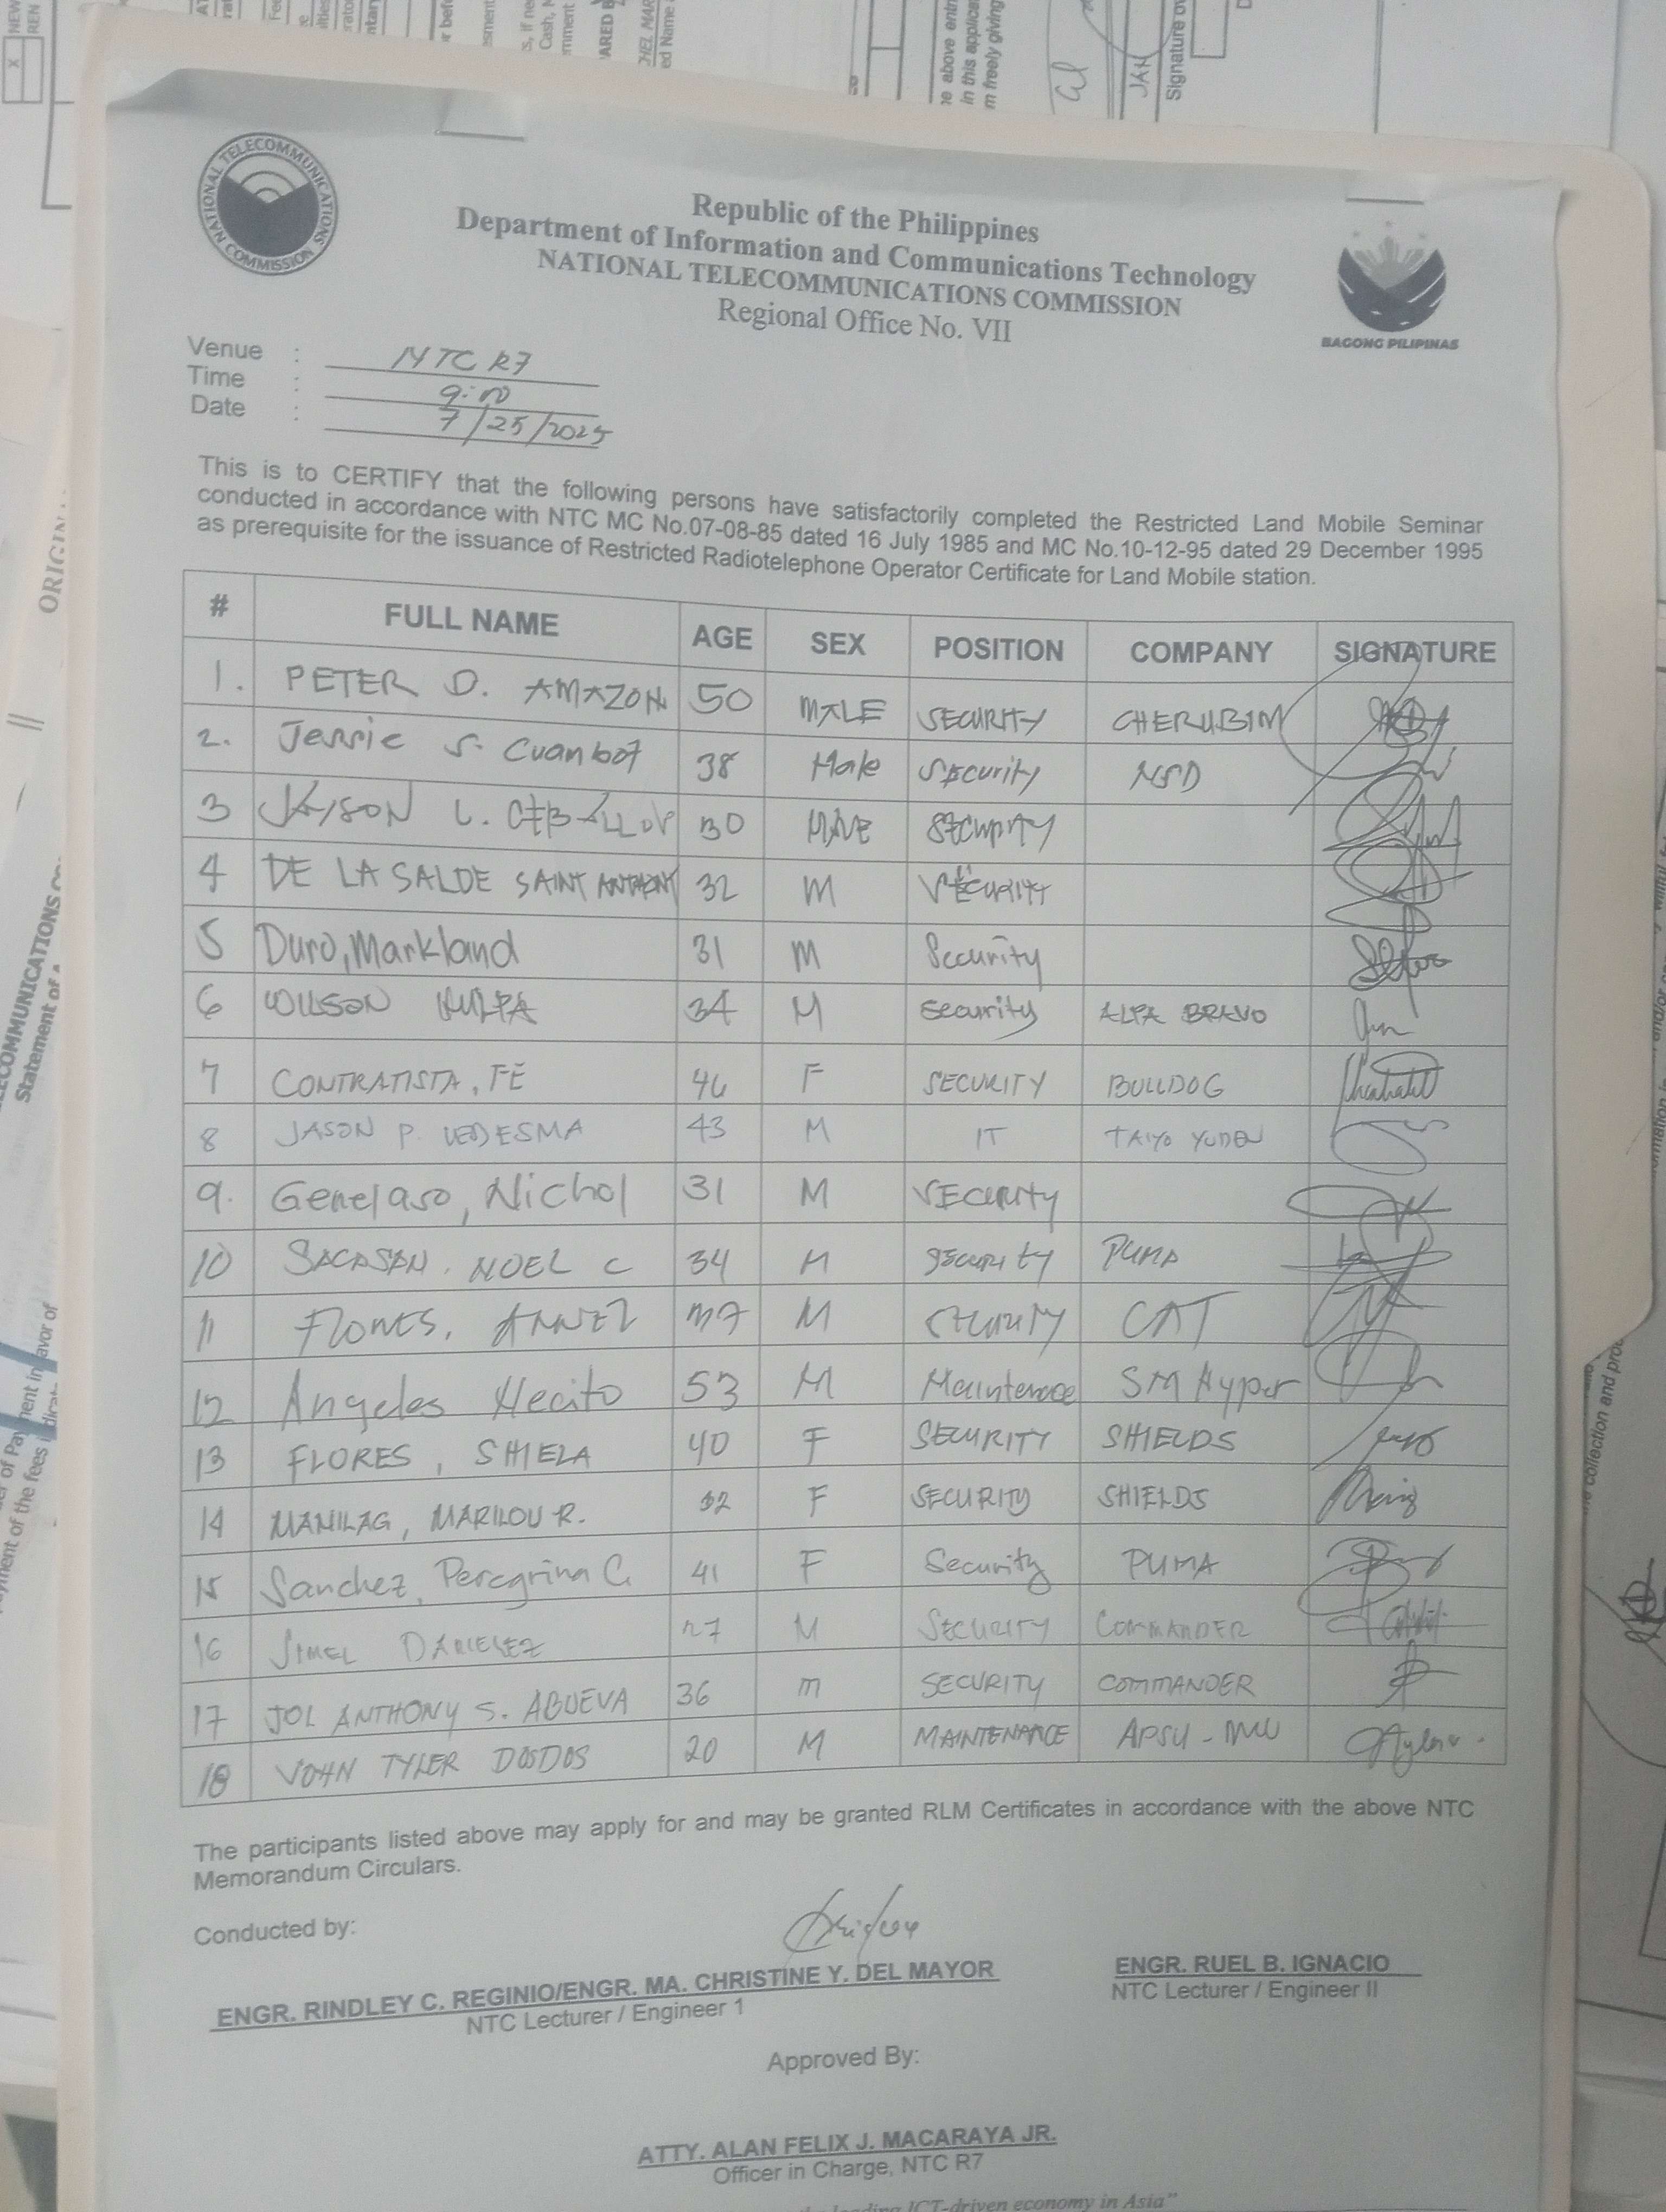 NATIONAL TELECOMMUNICATIONS COMMISSION
Republic of the Philippines
Department of Information and Communications Technology
NATIONAL TELECOMMUNICATIONS COMMISSION
Regional Office No. VII
BAGONG PILIPINAS
Venue : NTC R7
Time : 9:00
Date : 7/25/2025
This is to CERTIFY that the following persons have satisfactorily completed the Restricted Land Mobile Seminar
conducted in accordance with NTC MC No.07-08-85 dated 16 July 1985 and MC No.10-12-95 dated 29 December 1995
as prerequisite for the issuance of Restricted Radiotelephone Operator Certificate for Land Mobile station.
# FULL NAME AGE SEX POSITION COMPANY SIGNATURE
1. PETER D. AMAZON 50 MALE SECURITY CHERUBIM
2. Jerric S. Cuanbot 38 Male Security NSD
3 JAYSON L. CEBALLOS 30 MALE SECURITY
4 DE LA SALDE SAINT ANTHONY 32 M SECURITY
5 Duro, Markland 31 M Security
6 WILSON 34 M Security ALPA BRAVO
7 CONTRATISTA, FE 46 F SECURITY BULLDOG
8 JASON P. LEDESMA 43 M IT TAIYO YUDEN
9. Genelaso, Nichol 31 M SECURITY
10 SACASAN. NOEL C 34 M Security PUMA
11 37 M Security CAT
12 Angeles Hecito 53 M Maintenace SM Hyper
13 FLORES, SHIELA 40 F SECURITY SHIELDS
14 MANILAG, MARILOU R. 32 F SECURITY SHIELDS
15 Sanchez, Peregrina C. 41 F Security PUMA
16 27 M SECURITY COMMANDER
17 JOL ANTHONY S. ABUEVA 36 m SECURITY COMMANDER
18 JOHN TYLER DOSDOS 20 M MAINTENANCE
The participants listed above may apply for and may be granted RLM Certificates in accordance with the above NTC
Memorandum Circulars.
Conducted by:
ENGR. RINDLEY C. REGINIO/ENGR. MA. CHRISTINE Y. DEL MAYOR
NTC Lecturer / Engineer 1
ENGR. RUEL B. IGNACIO
NTC Lecturer / Engineer II
Approved By:
ATTY. ALAN FELIX J. MACARAYA JR.
Officer in Charge, NTC R7
ICT-driven economy in Asia"